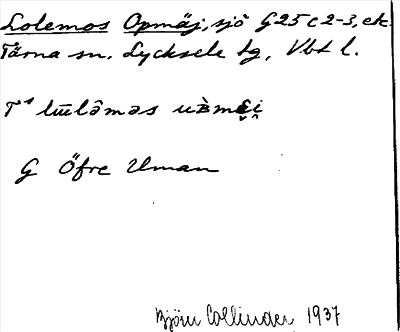 Lolemos Opmäj, sjö G25c2-3, ek.
Tärna sn. Lycksele lg, Vbt l.
G Öfre Uman
Björn Collinder 1937